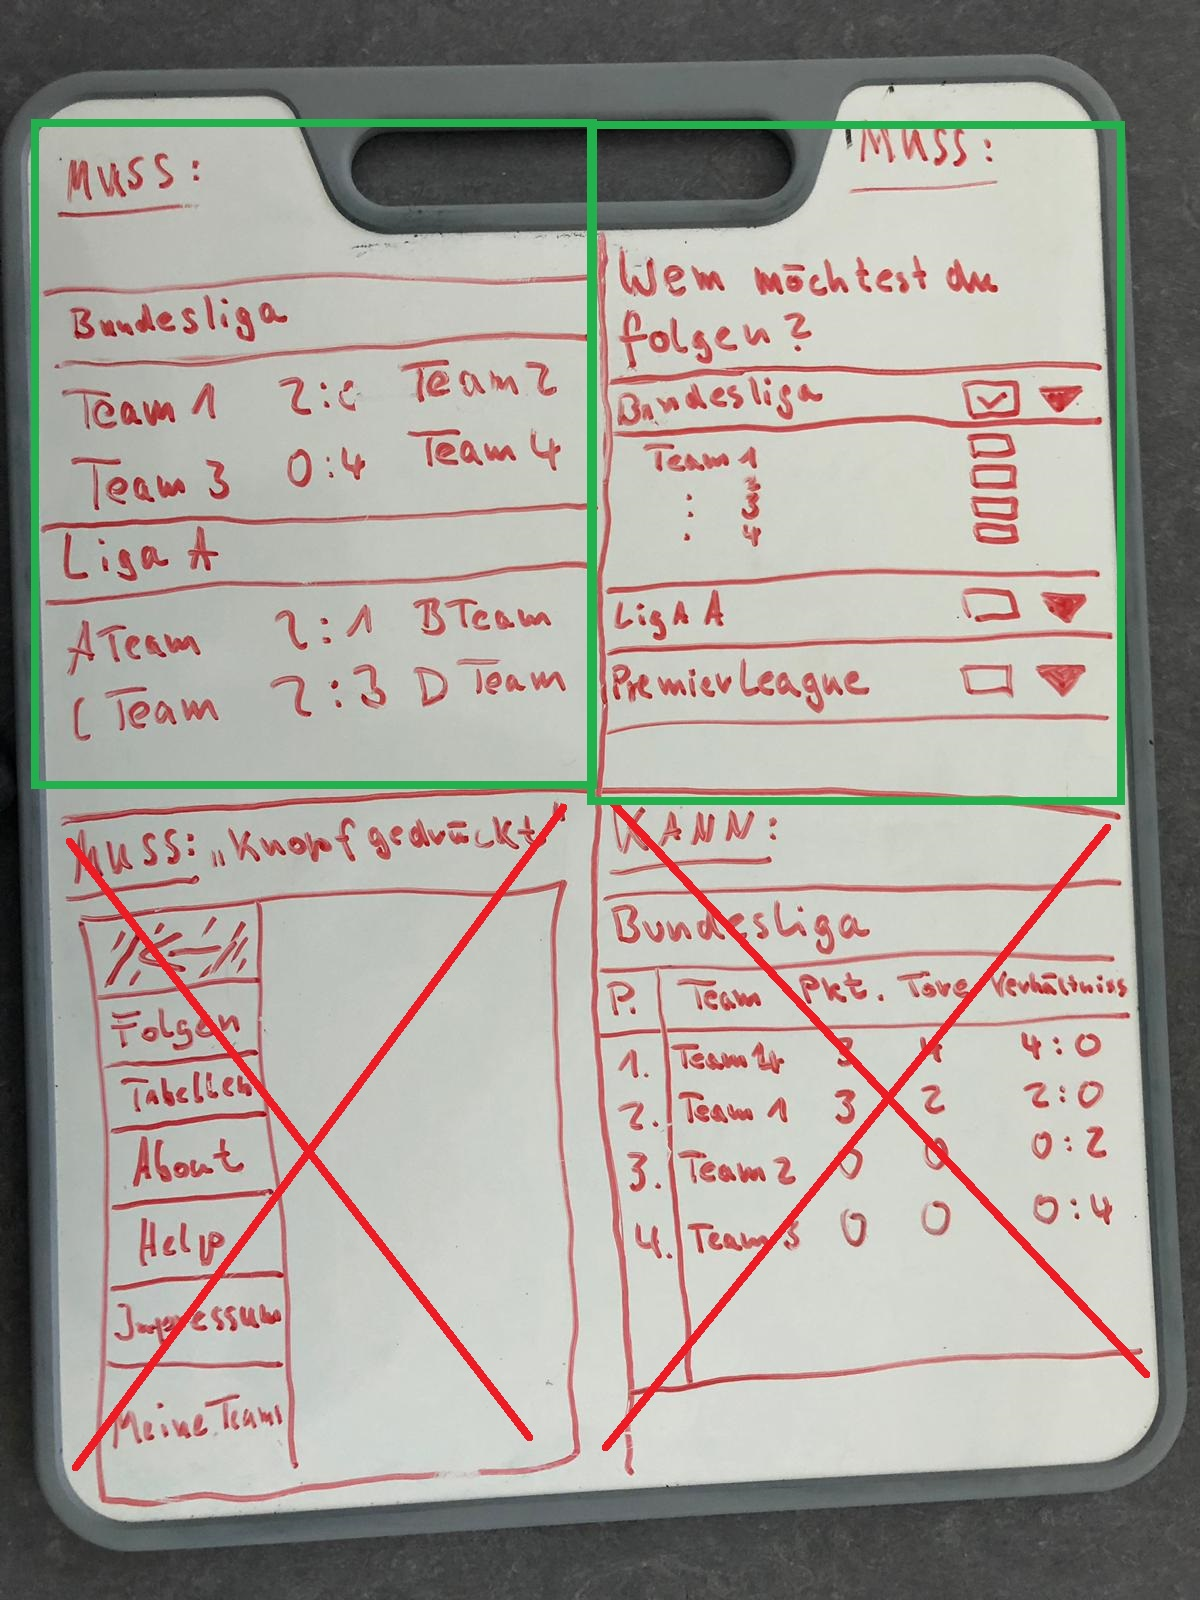 MUSS:
Bundesliga
Team 1 2:0 Team 2
Team 3 0:4 Team 4
Liga A
A Team 2:1 B Team
C Team 2:3 D Team
MUSS:
Wem möchtest du
folgen?
Bundesliga
Team 1
: 2
: 3
. 4
LigA A
Premier League
MUSS: „Knopf gedrückt"
Folgen
Tabellen
About
Help
Impressum
Meine Teams
KANN:
Bundesliga
P. Team Pkt. Tore Verhältniss
1. Team 4 3 4 4:0
2. Team 1 3 2 2:0
3. Team 2 0 0 0:2
4. Team 3 0 0 0:4